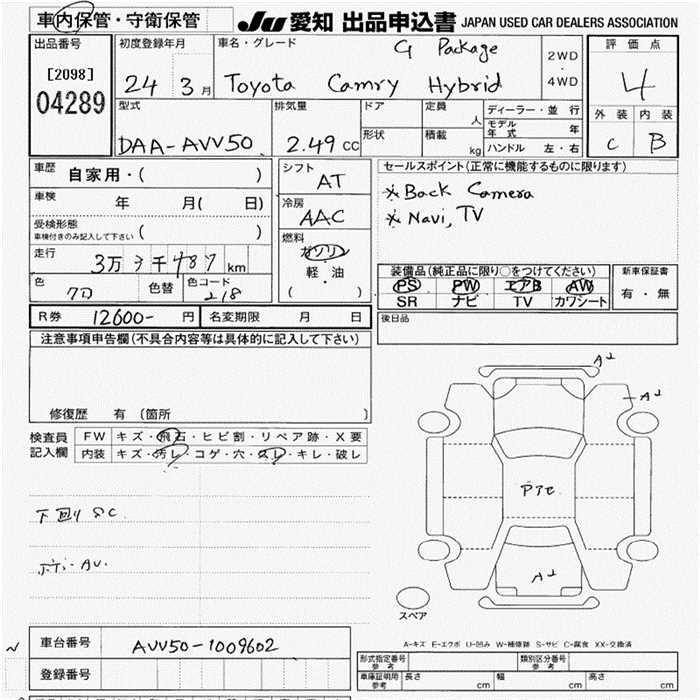 車内保管・守衛保管 JU 愛知 出品申込書 JAPAN USED CAR DEALERS ASSOCIATION
出品番号 初度登録年月 車名・グレード G Package 2WD・4WD 評価点
[2098]
04289 24 3月 Toyota Camry Hybrid 4
型式 排気量 ドア 定員 人 ディーラー・並行 外装 内装
DAA-AVV50 2.49cc 形状 積載 kg モデル年式 年 C B
ハンドル 左・右
車歴 自家用・( ) シフト AT セールスポイント(正常に機能するものに限ります)
車検 年 月( 日) 冷房 AAC ※Back Camera
受検形態 ( ) ※Navi, TV
車検付きのみ記入して下さい
燃料 ガソリン
走行 3万 千487km 軽・油 装備品(純正品に限り○をつけてください) 新車保証書
色 色替 色コード 218 ( ) PS PW エアB AW 有・無
SR ナビ TV カワシート
R券 12600- 円 名変期限 月 日 後日品
注意事項申告欄(不具合内容等は具体的に記入して下さい)
A1
A1
修復歴 有(箇所 )
検査員 FW キズ・飛石・ヒビ割・リペア跡・X要
記入欄 内装 キズ・汚レ・コゲ・穴・スレ・キレ・破レ
下回りSC.
A1
スペア
A-キズ E-エクボ U-凹み W-補修跡 S-サビ C-腐食 XX-交換済
車台番号 AVV50-1009602
登録番号
形式指定番号 参考 類別区分番号 参考
車庫証明用 参考 長さ cm 幅 cm 高さ cm